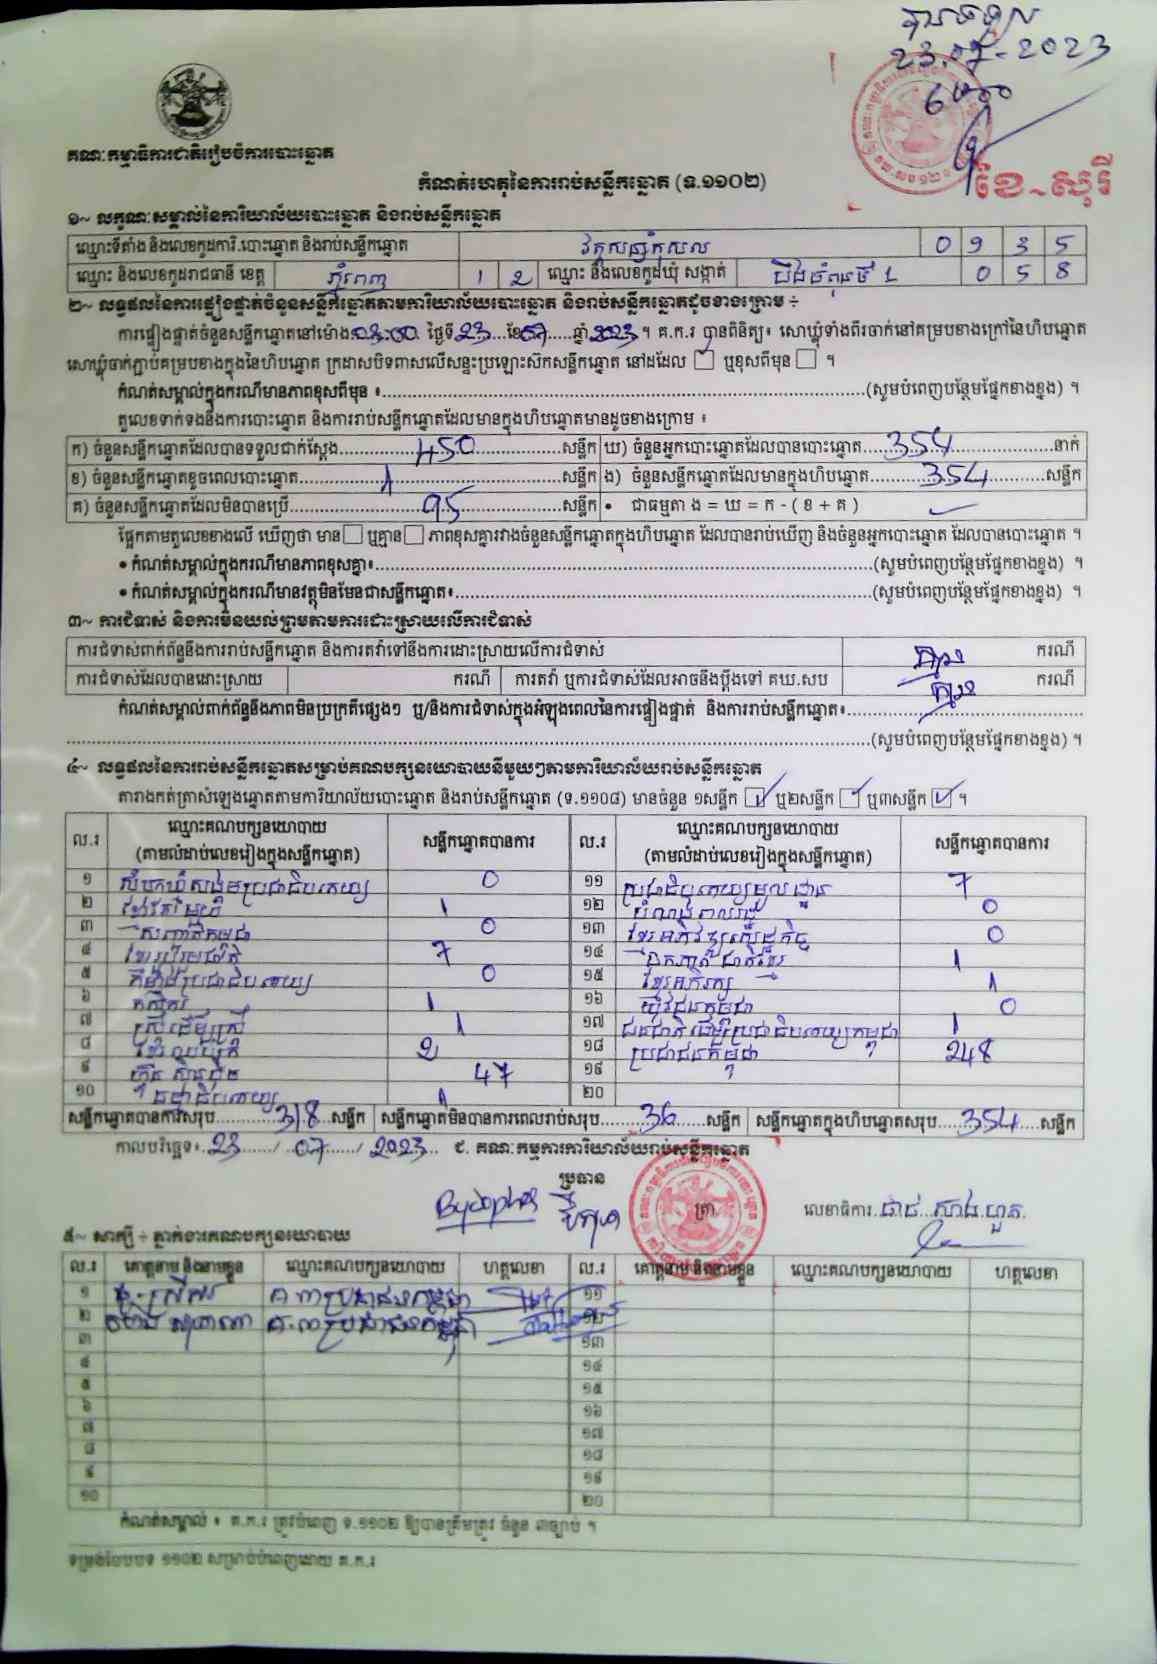 23.07.2023
គណៈកម្មាធិការជាតិរៀបចំការបោះឆ្នោត
ខៃ~សុរី
កំណត់ហេតុនៃការរាប់សន្លឹកឆ្នោត (ទ.១១០២)
១~ លក្ខណៈសម្គាល់នៃការិយាល័យបោះឆ្នោត និងរាប់សន្លឹកឆ្នោត
ឈ្មោះទីតាំង និងលេខកូដការិ.បោះឆ្នោត និងរាប់សន្លឹកឆ្នោត 0 9 3 5
ឈ្មោះ និងលេខកូដរាជធានី ខេត្ត ភ្នំពេញ 1 2 ឈ្មោះ និងលេខកូដឃុំ សង្កាត់ បឹងធំពុនទី 1 0 5 8
២~ លទ្ធផលនៃការផ្ទៀងផ្ទាត់ចំនួនសន្លឹកឆ្នោតតាមការិយាល័យបោះឆ្នោត និងរាប់សន្លឹកឆ្នោតដូចខាងក្រោម ÷
ការផ្ទៀងផ្ទាត់ចំនួនសន្លឹកឆ្នោតនៅម៉ោង03:00. ថ្ងៃទី23...ខែ07.....ឆ្នាំ2023។ គ.ក.រ បានពិនិត្យ៖ សោឃ្លុំទាំងពីរចាក់នៅគម្របខាងក្រៅនៃហិបឆ្នោត
សោឃ្លុំចាក់ភ្ជាប់គម្របខាងក្នុងនៃហិបឆ្នោត ក្រដាសបិទពាសលើសន្ទះប្រឡោះស៊កសន្លឹកឆ្នោត នៅដដែល ឬខុសពីមុន ។
កំណត់សម្គាល់ក្នុងករណីមានភាពខុសពីមុន ៖......(សូមបំពេញបន្ថែមផ្នែកខាងខ្នង) ។
តួលេខទាក់ទងនឹងការបោះឆ្នោត និងការរាប់សន្លឹកឆ្នោតដែលមានក្នុងហិបឆ្នោតមានដូចខាងក្រោម ៖
ក) ចំនួនសន្លឹកឆ្នោតដែលបានទទួលជាក់ស្តែង......450......សន្លឹក ឃ) ចំនួនអ្នកបោះឆ្នោតដែលបានបោះឆ្នោត......354......នាក់
ខ) ចំនួនសន្លឹកឆ្នោតខូចពេលបោះឆ្នោត......1......សន្លឹក ង) ចំនួនសន្លឹកឆ្នោតដែលមានក្នុងហិបឆ្នោត......354......សន្លឹក
គ) ចំនួនសន្លឹកឆ្នោតដែលមិនបានប្រើ......95......សន្លឹក • ជាធម្មតា ង = ឃ = ក - ( ខ + គ )
ផ្អែកតាមតួលេខខាងលើ ឃើញថា មាន ឬគ្មាន ភាពខុសគ្នារវាងចំនួនសន្លឹកឆ្នោតក្នុងហិបឆ្នោត ដែលបានរាប់ឃើញ និងចំនួនអ្នកបោះឆ្នោត ដែលបានបោះឆ្នោត ។
• កំណត់សម្គាល់ក្នុងករណីមានភាពខុសគ្នា៖......(សូមបំពេញបន្ថែមផ្នែកខាងខ្នង) ។
• កំណត់សម្គាល់ក្នុងករណីមានវត្ថុមិនមែនជាសន្លឹកឆ្នោត៖......(សូមបំពេញបន្ថែមផ្នែកខាងខ្នង) ។
៣~ ការជំទាស់ និងការមិនយល់ព្រមតាមការដោះស្រាយលើការជំទាស់
ការជំទាស់ពាក់ព័ន្ធនឹងការរាប់សន្លឹកឆ្នោត និងការតវ៉ាទៅនឹងការដោះស្រាយលើការជំទាស់ គ្មាន ករណី
ការជំទាស់ដែលបានដោះស្រាយ ករណី ការតវ៉ា ឬការជំទាស់ដែលអាចនឹងប្តឹងទៅ គឃ.សប គ្មាន ករណី
កំណត់សម្គាល់ពាក់ព័ន្ធនឹងភាពមិនប្រក្រតីផ្សេងៗ ឬ/និងការជំទាស់ក្នុងអំឡុងពេលនៃការផ្ទៀងផ្ទាត់ និងការរាប់សន្លឹកឆ្នោត៖......
......(សូមបំពេញបន្ថែមផ្នែកខាងខ្នង) ។
៤~ លទ្ធផលនៃការរាប់សន្លឹកឆ្នោតសម្រាប់គណបក្សនយោបាយនីមួយៗតាមការិយាល័យរាប់សន្លឹកឆ្នោត
តារាងកត់ត្រាសំឡេងឆ្នោតតាមការិយាល័យបោះឆ្នោត និងរាប់សន្លឹកឆ្នោត (ទ.១១០៨) មានចំនួន ១សន្លឹក ឬ២សន្លឹក ឬ៣សន្លឹក ។
ល.រ ឈ្មោះគណបក្សនយោបាយ (តាមលំដាប់លេខរៀងក្នុងសន្លឹកឆ្នោត) សន្លឹកឆ្នោតបានការ ល.រ ឈ្មោះគណបក្សនយោបាយ (តាមលំដាប់លេខរៀងក្នុងសន្លឹកឆ្នោត) សន្លឹកឆ្នោតបានការ
១ សំបុកឃ្មុំសង្គមប្រជាធិបតេយ្យ 0 ១១ ប្រជាធិបតេយ្យមូលដ្ឋាន 7
២ 1 ១២ 0
៣ 0 ១៣ ខ្មែរអភិវឌ្ឍសេដ្ឋកិច្ច 0
៤ ខ្មែររួបរួមជាតិ 7 ១៤ ឯកភាពជាតិខ្មែរ 1
៥ កម្លាំងប្រជាធិបតេយ្យ 0 ១៥ ខ្មែរអភិរក្ស 1
៦ កសិករ 1 ១៦ យុវជនកម្ពុជា 0
៧ ស្ត្រីដើម្បីស្ត្រី 1 ១៧ ជនជាតិដើមប្រជាធិបតេយ្យកម្ពុជា 1
៨ 2 ១៨ ប្រជាជនកម្ពុជា 248
៩ ហ៊្វុនស៊ិនប៉ិច 47 ១៩
១០ ធម្មាធិបតេយ្យ 1 ២០
សន្លឹកឆ្នោតបានការសរុប......318...សន្លឹក សន្លឹកឆ្នោតមិនបានការពេលរាប់សរុប......36......សន្លឹក សន្លឹកឆ្នោតក្នុងហិបឆ្នោតសរុប......354......សន្លឹក
កាលបរិច្ឆេទ៖ 23 / 07 / 2023 ៥. គណៈកម្មការការិយាល័យរាប់សន្លឹកឆ្នោត
ប្រធាន
ត្រា
លេខាធិការ
៥~ សាក្សី ÷ ភ្នាក់ងារគណបក្សនយោបាយ
ល.រ គោត្តនាម និងនាមខ្លួន ឈ្មោះគណបក្សនយោបាយ ហត្ថលេខា ល.រ គោត្តនាម និងនាមខ្លួន ឈ្មោះគណបក្សនយោបាយ ហត្ថលេខា
១ គ.បប្រជាជនកម្ពុជា ១១
២ គ.បប្រជាជនកម្ពុជា ១២
៣ ១៣
៤ ១៤
៥ ១៥
៦ ១៦
៧ ១៧
៨ ១៨
៩ ១៩
១០ ២០
កំណត់សម្គាល់ ៖ គ.ក.រ ត្រូវបំពេញ ទ.១១០២ ឱ្យបានត្រឹមត្រូវ ចំនួន ៣ច្បាប់ ។
ទម្រង់បែបបទ ១១០២ សម្រាប់បំពេញដោយ គ.ក.រ